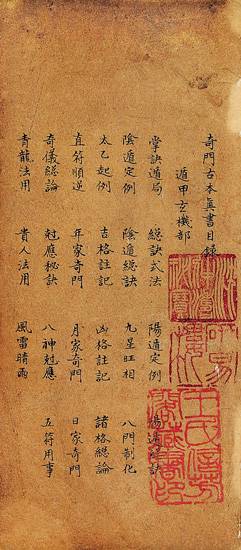 奇門古本眞書目錄
遁甲玄機部
掌訣遁局 總訣式法 陽遁定例 陽遁總訣
陰遁定例 陰遁總訣 九星旺相 八門制化
太乙起例 吉格註記 凶格註記 諸格總論
直符順逆 年家奇門 月家奇門 日家奇門
奇儀總論 尅應秘訣 八神尅應 五符用事
青龍法用 貴人法用 風雷晴雨